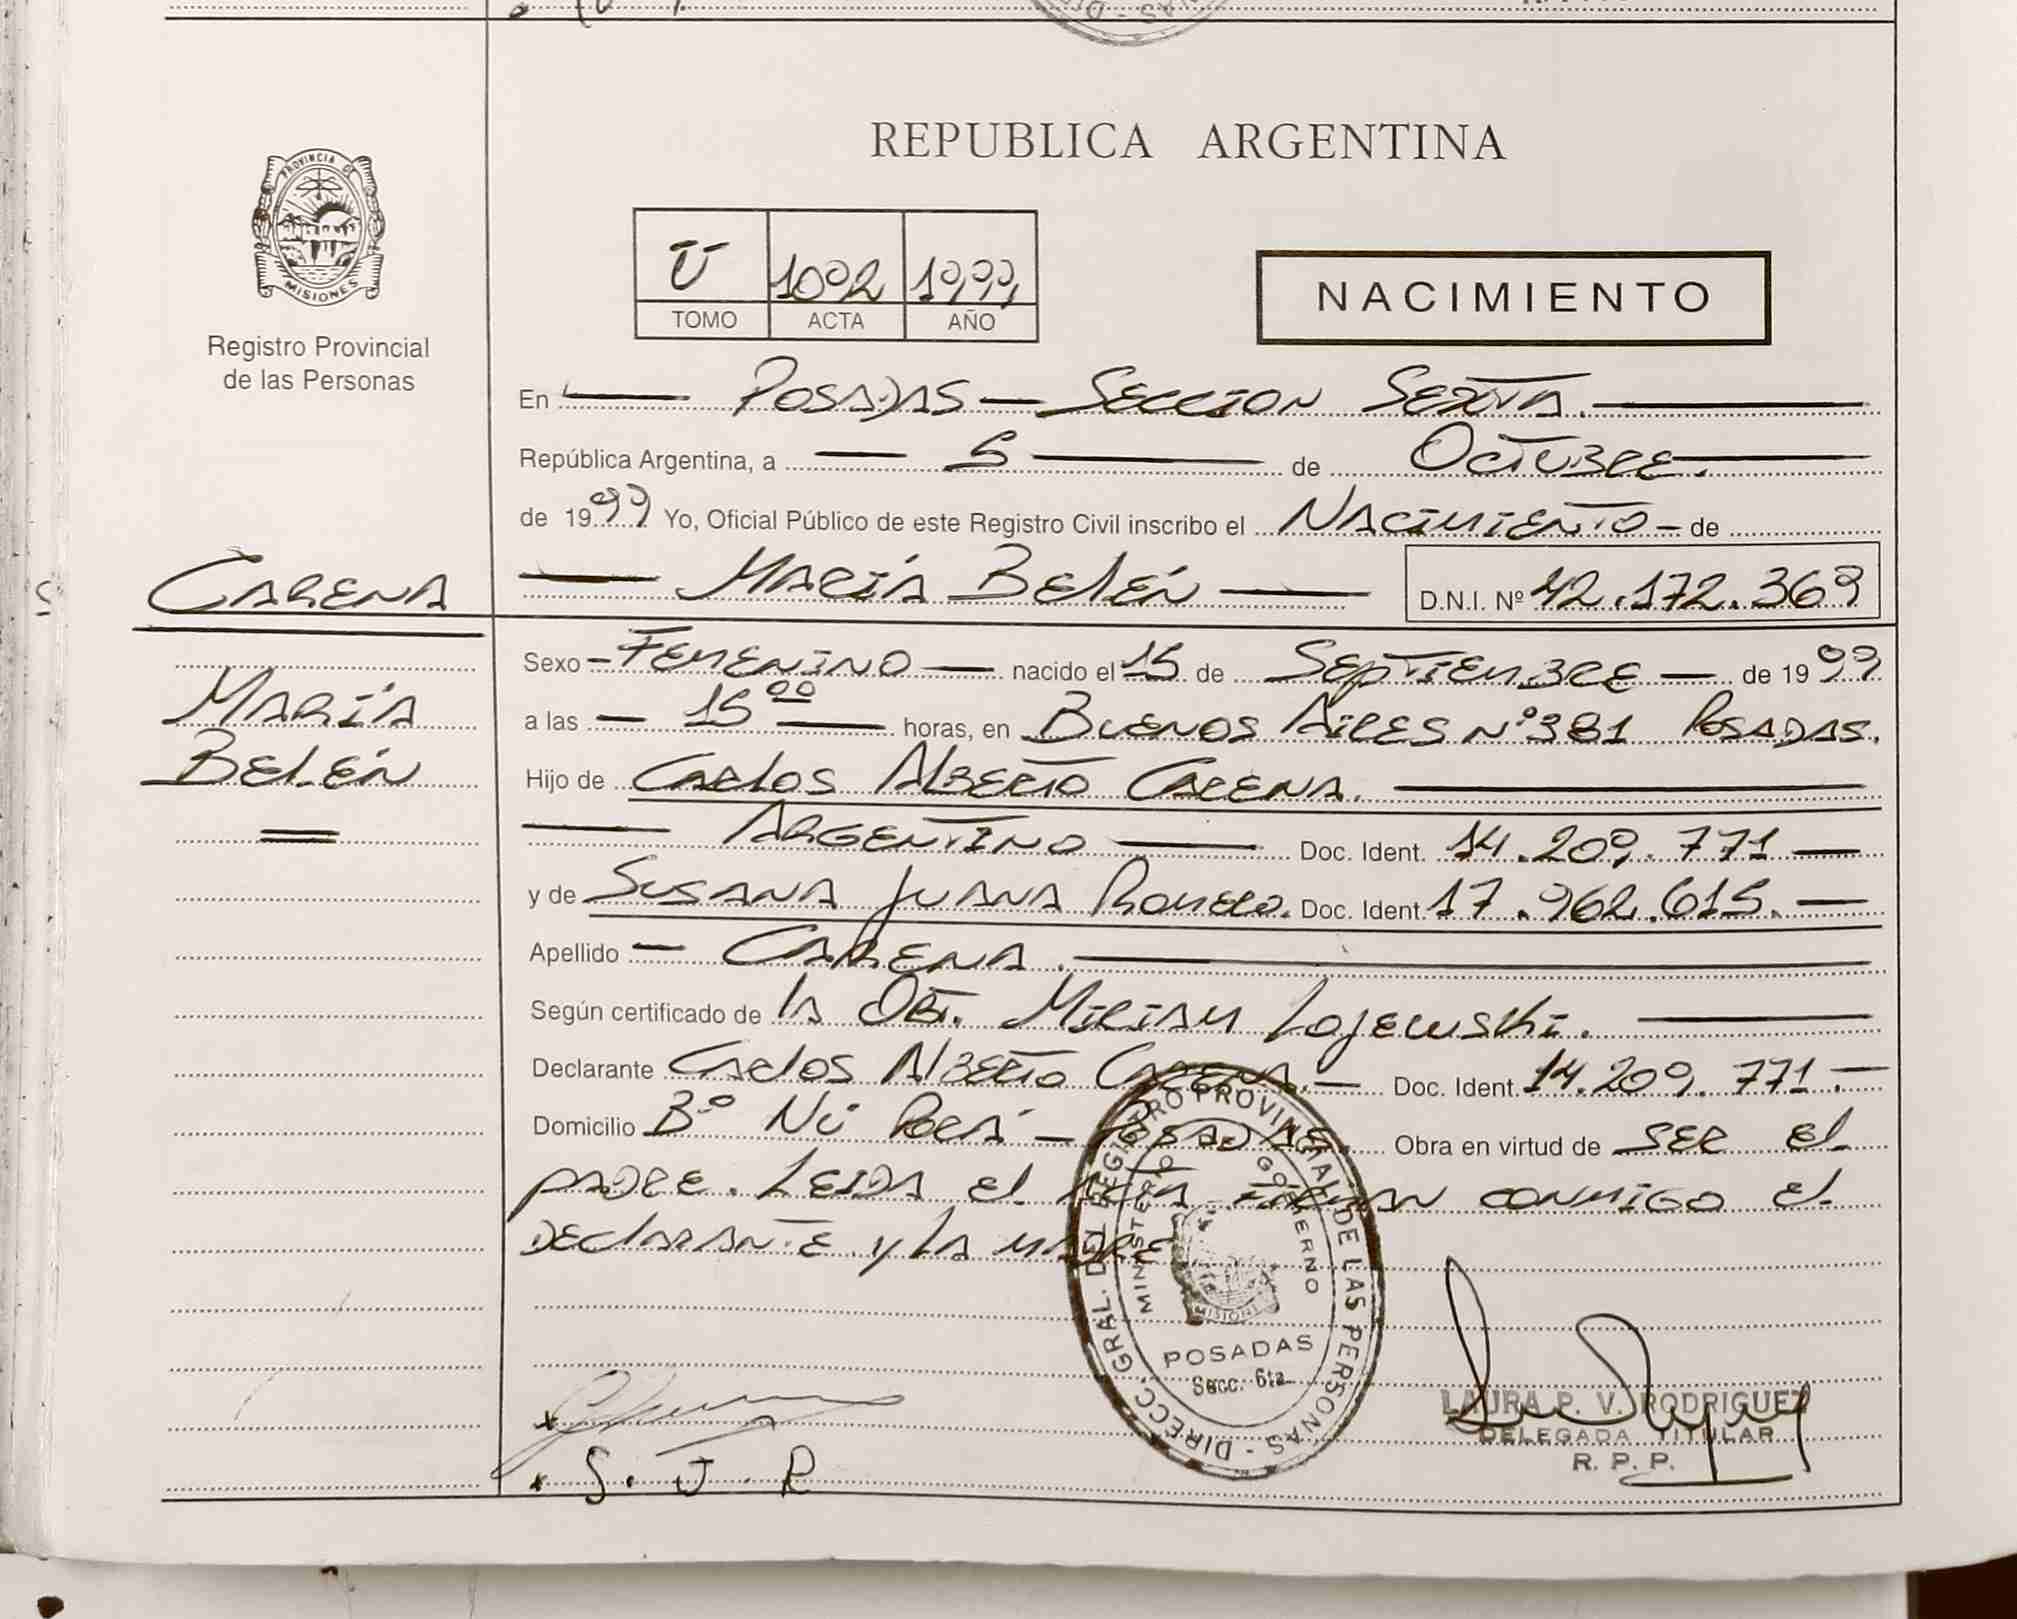 REPUBLICA ARGENTINA
PROVINCIA DE
MISIONES
Registro Provincial
de las Personas
Ū 1092 1999
TOMO ACTA AÑO
NACIMIENTO
En — POSADAS — SECCION SEXTA. —
República Argentina, a — 5 — de OCTUBRE. —
de 1999 Yo, Oficial Público de este Registro Civil inscribo el NACIMIENTO — de
CARENA
— MARÍA BELÉN — D.N.I. Nº 42.172.369
MARÍA
BELÉN
Sexo — FEMENINO — nacido el 15 de SEPTIEMBRE — de 1999
a las — 15 00 — horas, en BUENOS AIRES Nº 381 POSADAS.
Hijo de CARLOS ALBERTO CARENA. —
— ARGENTINO — Doc. Ident. 14.209.771 —
y de SUSANA JUANA ROMERO. Doc. Ident. 17.962.615. —
Apellido — CARENA. —
Según certificado de la OBT. MIRIAM Lojewski. —
Declarante CARLOS ALBERTO CARENA. — Doc. Ident. 14.209.771. —
Domicilio Bº Ñu PORÁ — POSADAS. Obra en virtud de SER El
PADRE. LEIDA el ACTA FIRMAN CONMIGO el
DECLARANTE y LA MADRE
DIRECC. GRAL. DEL REGISTRO PROVINCIAL DE LAS PERSONAS -
MINISTERIO DE GOBIERNO
MISIONES
POSADAS
Secc. 6ta.
S. J. R
LAURA P. V. RODRIGUEZ
DELEGADA TITULAR
R. P. P.